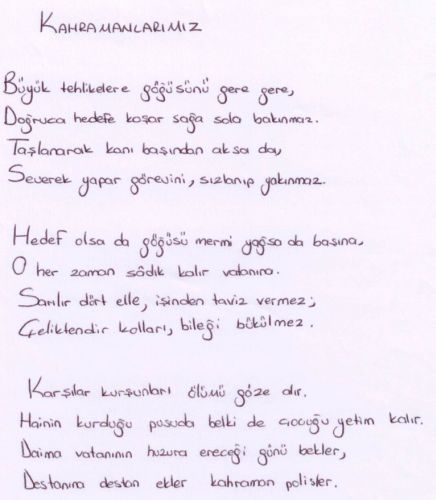 KAHRAMANLARIMIZ
Büyük tehlikelere göğüsünü gere gere,
Doğruca hedefe koşar sağa sola bakınmaz.
Taşlanarak kanı başından aksa da,
Severek yapar görevini, sızlanıp yakınmaz.
Hedef olsa da göğüsü mermi yağsa da başına,
O her zaman sâdık kalır vatanına.
Sarılır dört elle, işinden taviz vermez;
Çeliktendir kolları, bileği bükülmez.
Karşılar kurşunları ölümü göze alır.
Hainin kurduğu pusuda belki de çocuğu yetim kalır.
Daima vatanının huzura ereceği günü bekler,
Destanına destan ekler kahraman polisler.